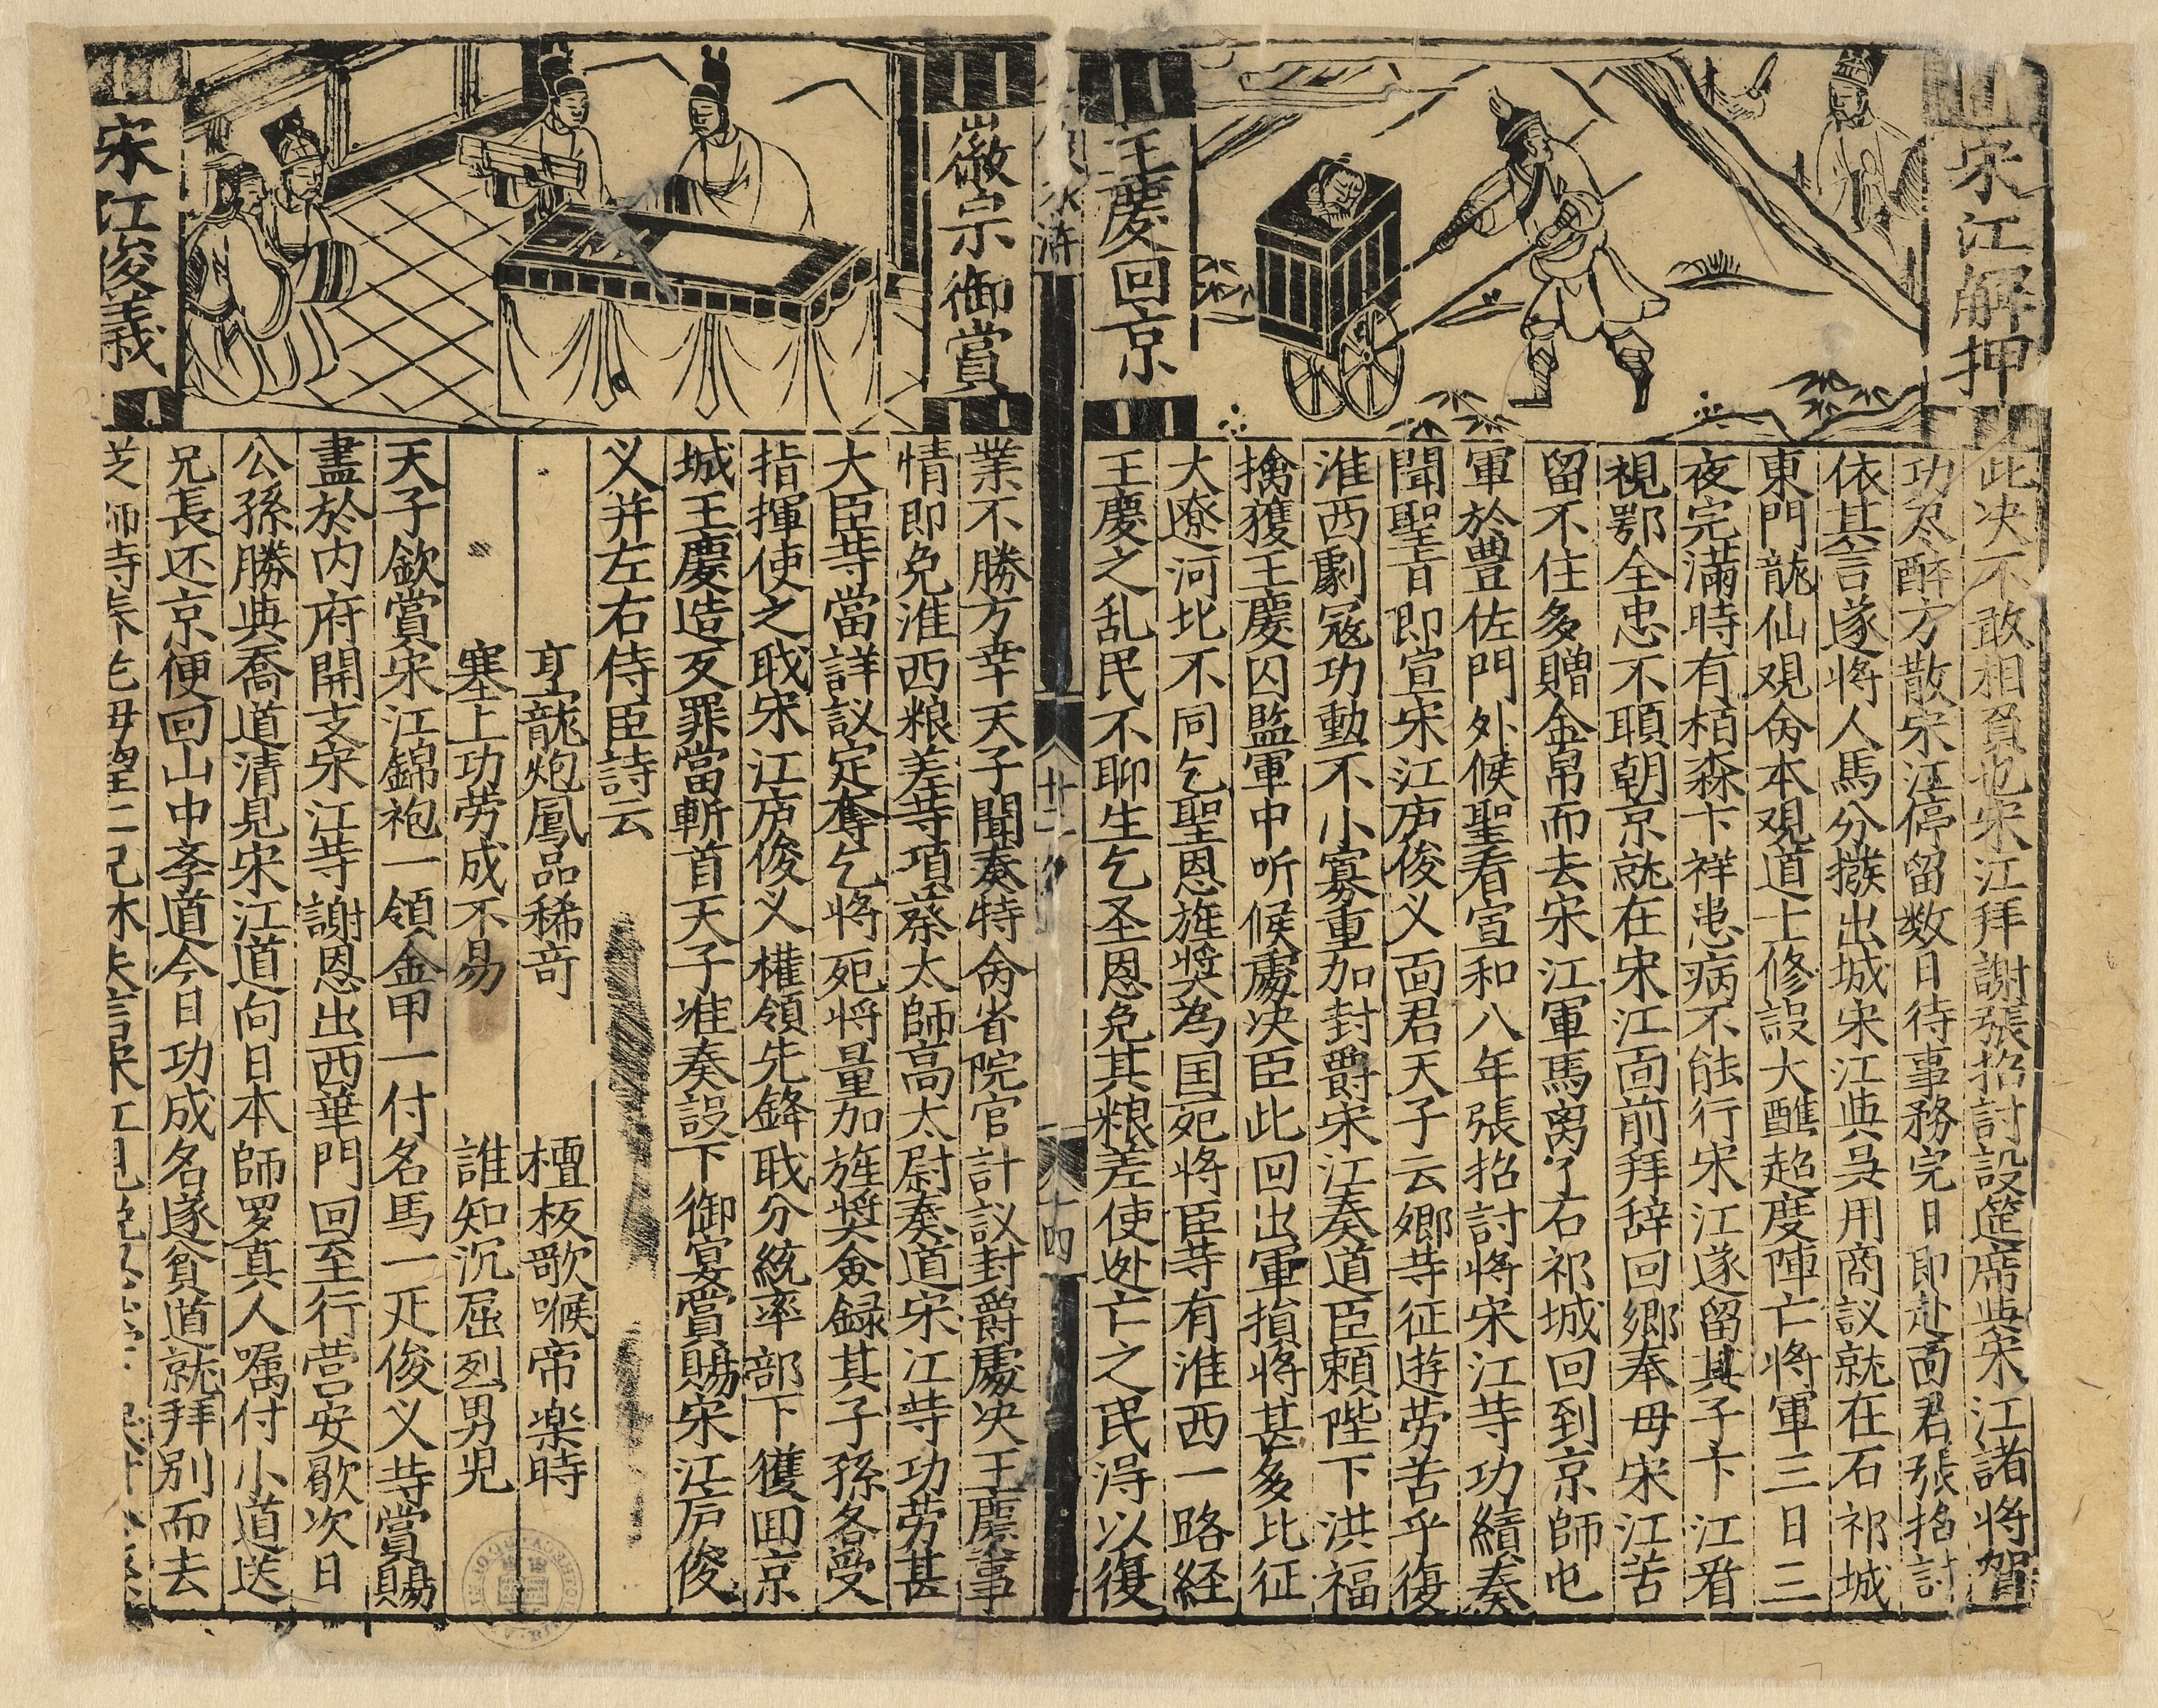 宋江解押
王慶回京
此决不敢相負也宋江拜謝張招討設筵席與宋江諸將賀
功尽醉方散宋江停留数日待事務完日即赴面君張招討
依其言遂将人馬分撥出城宋江與吳用商議就在石祁城
東門龍仙观令本观道士修設大醮超度陣亡將軍三日三
夜完滿時有栢森卞祥患病不能行宋江遂留其子卞江看
視鄂全忠不願朝京就在宋江面前拜辞回鄉奉母宋江苦
留不住多贈金帛而去宋江軍馬离了石祁城回到京師屯
軍於豊佐門外候聖看宣和八年張招討將宋江䓁功績奏
聞聖旨即宣宋江庐俊义面君天子云鄉䓁征遊劳苦乎復
淮西劇寇功勳不小寡重加封爵宋江奏道臣頼陛下洪福
擒獲王慶囚監軍中听候處决臣此回出軍損將甚多比征
大遼河北不同乞聖恩旌奨為国死將臣䓁有淮西一路経
王慶之乱民不聊生乞圣恩免其粮差使迯亡之民淂以復
水滸
廿二
十四
徽宗御賞
宋江俊義
業不勝方幸天子聞奏特命省院官計議封爵處决王慶事
情即免淮西粮差䓁項蔡太師高太尉奏道宋江䓁功劳甚
大臣䓁當詳議定奪乞將死將量加旌奨僉録其子孫各受
指揮使之職宋江庐俊义權領先鋒職分統率部下獲囬京
城王慶造反罪當斬首天子准奏設下御宴賞賜宋江庐俊
义并左右侍臣詩云
烹龍炮鳳品稀竒　檀板歌喉帝楽時
塞上功劳成不易　誰知沉屈烈男児
天子欽賞宋江錦袍一領金甲一付名馬一疋俊义䓁賞賜
盡於内府開支宋江䓁謝恩出西華門回至行营安歇次日
公孫勝與喬道清見宋江道向日本師罗真人嘱付小道送
兄長还京便回山中斈道今日功成名遂貧道就拜别而去